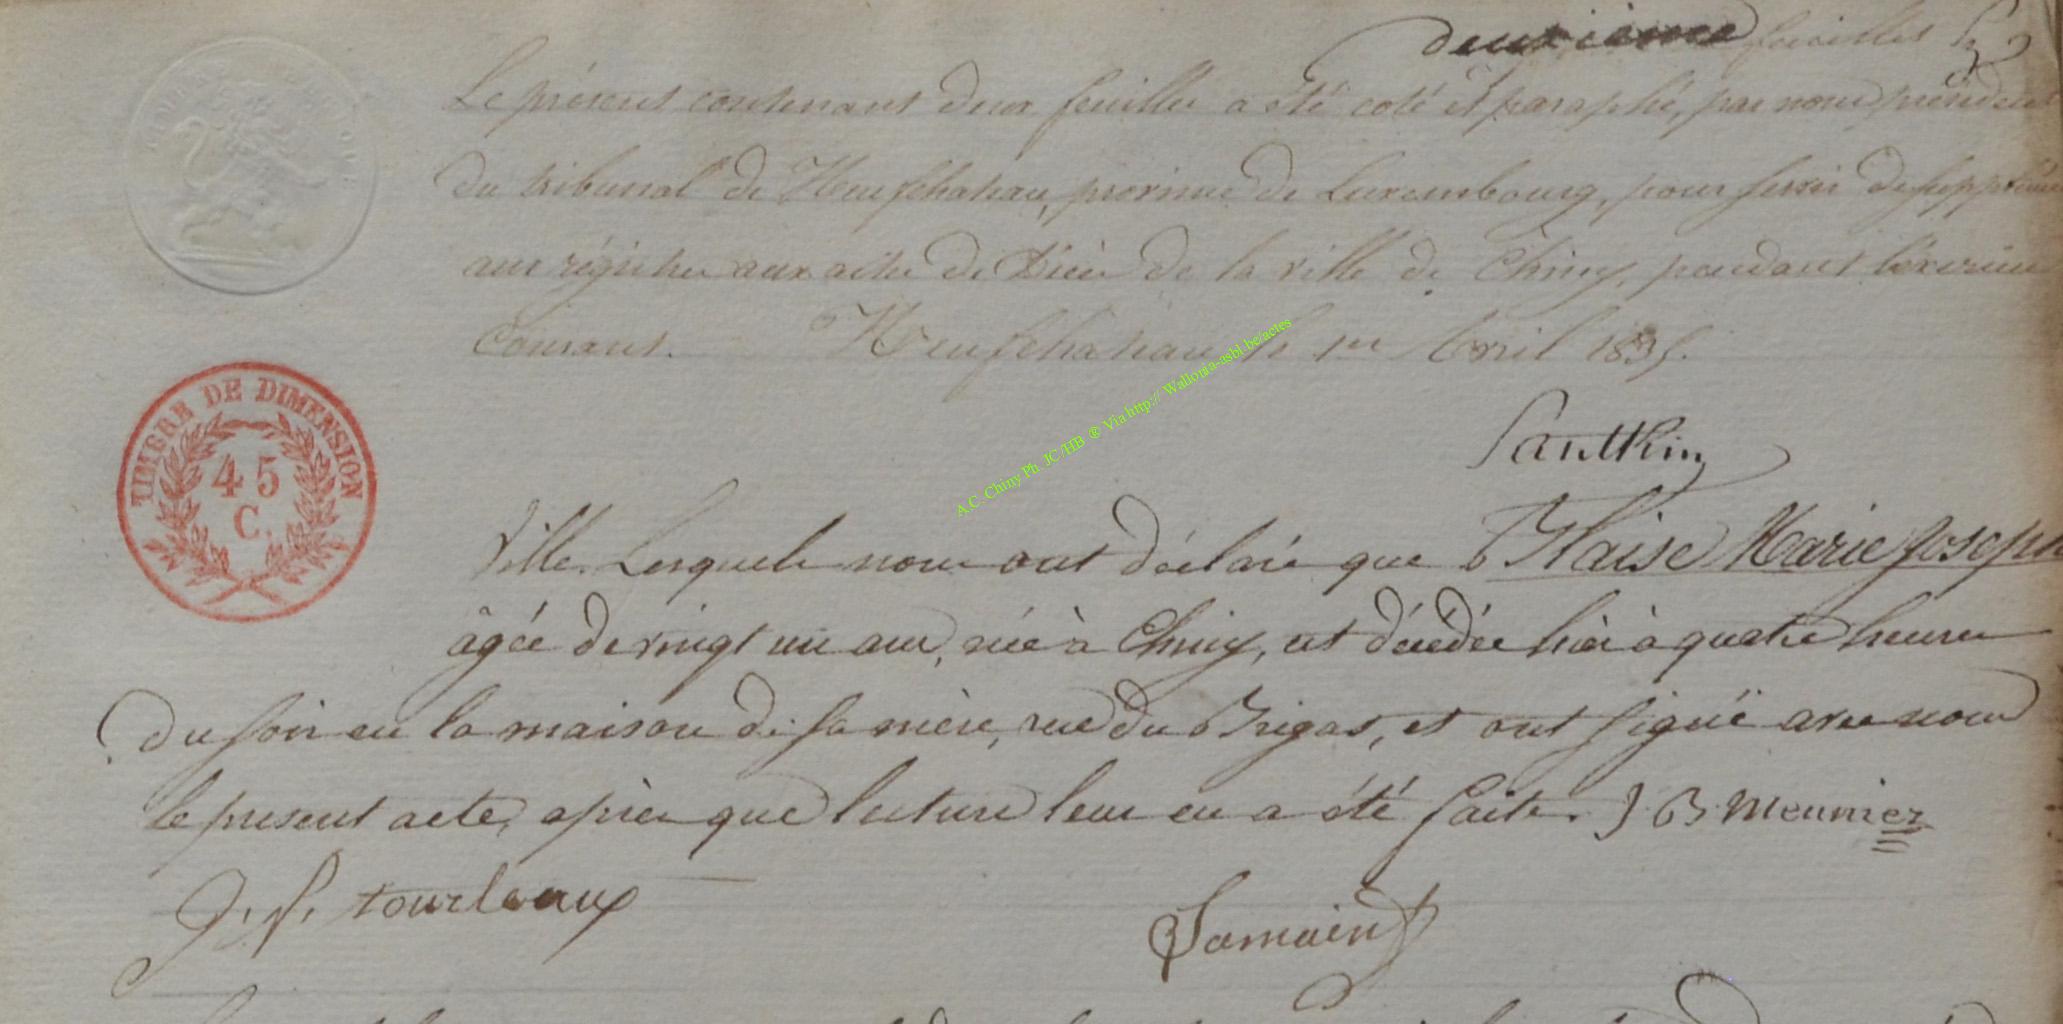 deuxième feuillet
Le présent contenant deux feuilles a été coté et paraphé, par nous président
du tribunal de Neufchateau, province de Luxembourg, pour servir de supplément
aux régistres aux actes de Décès de la ville de Chiny, pendant l'éxercice
Courant. Neufchateau le 1er Avril 1835.
TIMBRE DE DIMENSION
45
C.
A.C. Chiny Ph. JC/HB ® Via http:// Wallonia-asbl.be/actes
Ville. Lesquels nous ont déclaré que Blaise Marie Joseph
âgée de vingt un ans, née à Chiny, est décédée hier à quatre heures
du soir en la maison de sa mère, rue du Brigat, et ont signé avec nous
le present acte, après que lecture leur en a été faite. J B Meunier
J. P. tourlaux
Jamain